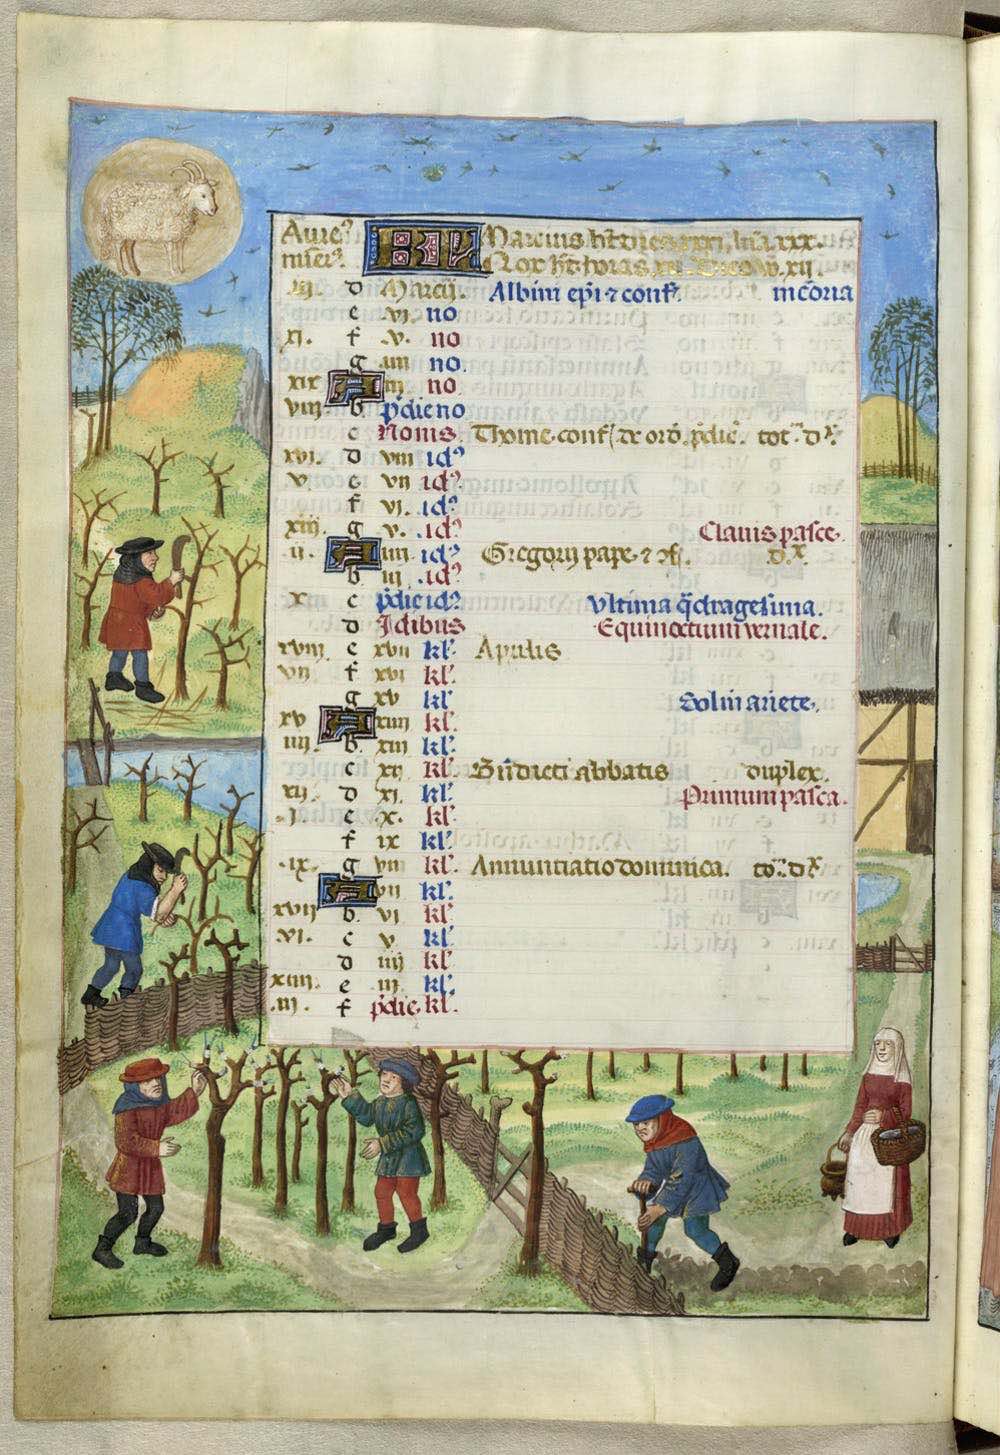 Aure⁹ KL Marcius h̅t dies xxxi, lũa xxx.
mieri⁹. Nox h̅t horas xii. Dies v̊ xii.
iii d Marcij. Albini ep̃i ⁊ conf̃. mc̃oria
e vi no
xi. f .v. no
g iiii no.
xix A iii no
viii b p̃die no
c Nonis. Thome. conf. de ord. p̃dic̃. tot̃ dx̃.
xvi. d viii id⁹
v. e vii id⁹
f vi. id⁹
xiii g v. id⁹ Clauis pasce.
.ii. A iiii id⁹ Gregorij pape ⁊ cf̃. d.x.
b iii .id⁹
x c p̃die id⁹. Vltima q̃dragesima.
d Idibus Equinoctium vernale.
xviii e xvii kl̃. Aprilis
vii f xvi kl̃.
g xv kl̃ Sol in ariete.
xv A xiiii kl̃.
iiii b xiii kl̃.
c xii kl̃. Bñdicti abbatis duplex.
xii. d xi. kl̃. Primum pasca.
.i. e x. kl̃.
f ix kl̃.
.ix. g viii kl̃. Annunciatio dominica. to.̃ dx̃
A vii kl̃.
xvii b. vi kl̃.
.vi. c v kl̃.
d iiij kl̃.
xiiii e iii kl̃.
.iii. f p̃die. kl̃.